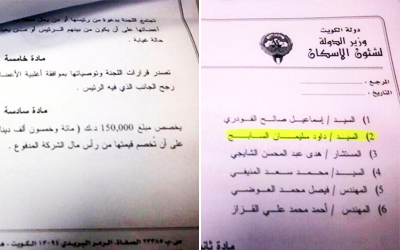 دولة الكويت
وزير الدولة
لشئون الإسكان
المرجع :
التاريخ :
1) السيد / إسماعيل صالح الفودري
2) السيد / داود سليمان السابج
3) المستشار / هدى عبد المحسن الشايجي
4) السيد / محمد سعد المنيفي
5) المهندس / فيصل محمد العوضي
6) المهندس / أحمد محمد علي القزاز
تجتمع اللجنة بدعوة من رئيسها أو من
أعضائها على أن يكون من بينهم الرئيس أو من
حالة غيابه .
مادة خامسة
تصدر قرارات اللجنة وتوصياتها بموافقة أغلبية
رجح الجانب الذي فيه الرئيس .
مادة سادسة
يخصص مبلغ 150,000 د.ك ( مائة وخمسون ألف
على أن تُخصم قيمتها من رأس مال الشركة المدفوع .
ص ب ٢٣٣٨٥ الصفاة، الرمز البريدي ١٣٠٩٤ الكويت